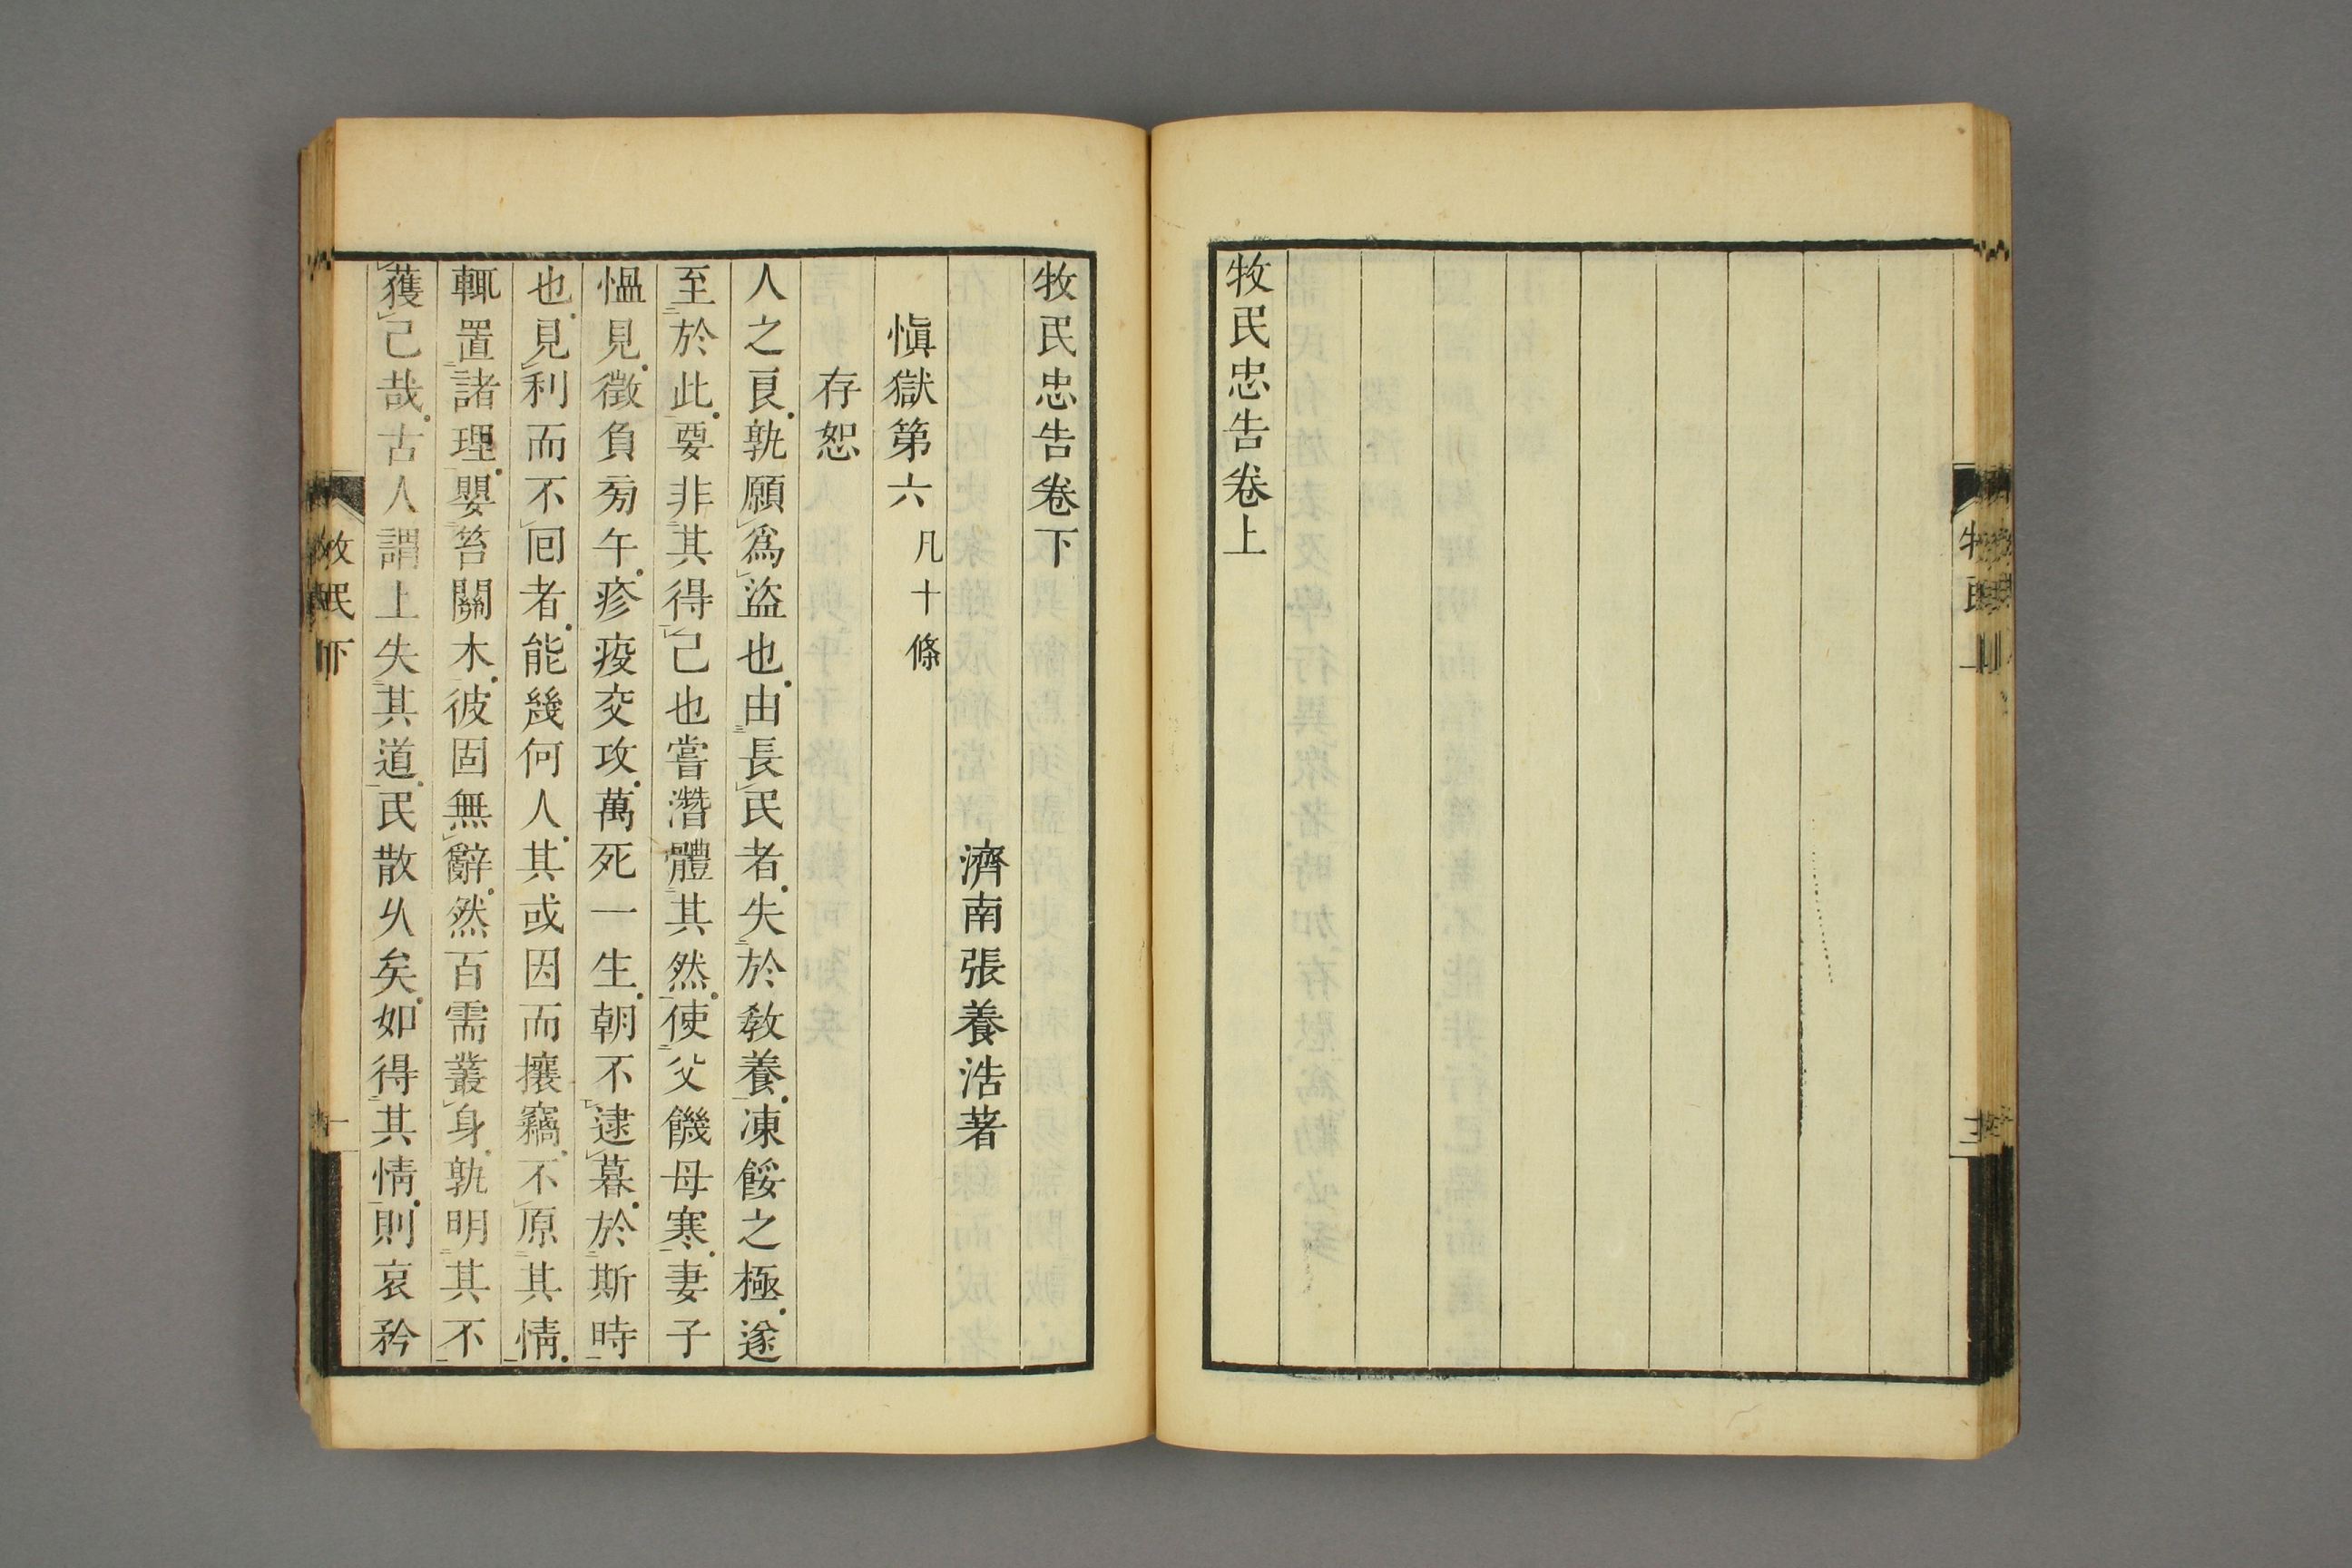 牧民忠告卷上
牧民忠告卷下
濟南張養浩著
愼獄第六 凡十條
存恕
人之良孰願爲盜也由長民者失於敎養凍餒之極遂
至於此要非其得已也嘗潛體其然使父饑母寒妻子
慍見徵負旁午疹疫交攻萬死一生朝不逮暮於斯時
也見利而不回者能幾何人其或因而攘竊不原其情
輒置諸理嬰笞關木彼固無辭然百需叢身孰明其不
獲已哉古人謂上失其道民散乆矣如得其情則哀矜
牧民下
一